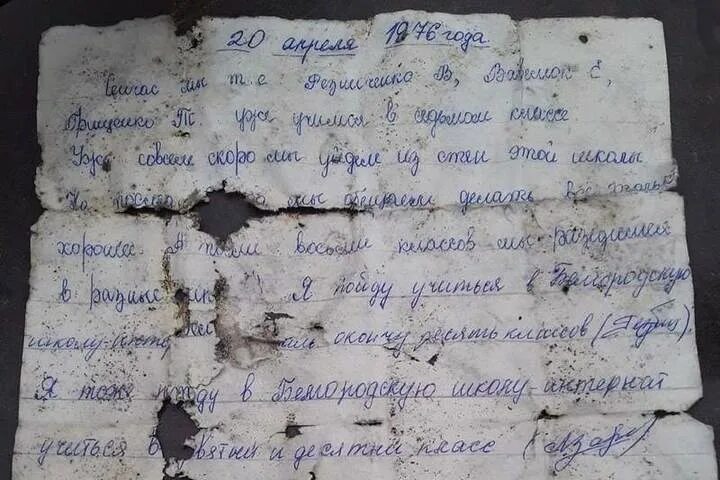 20 апреля 1976 года
Сейчас мы т.е Резниченко В, Е,
Грищенко Т уже учимся в седьмом классе
Уже совсем скоро мы уйдем из стен этой школы
мы обещаем делать всё только
хорошее. А после восьми классов мы разъедимся
в разные Я пойду учиться в Белгородскую
школу-интер окончу десять классов
Я тоже пойду в Белгородскую школу-интернат
учиться в девятый и десятый класс